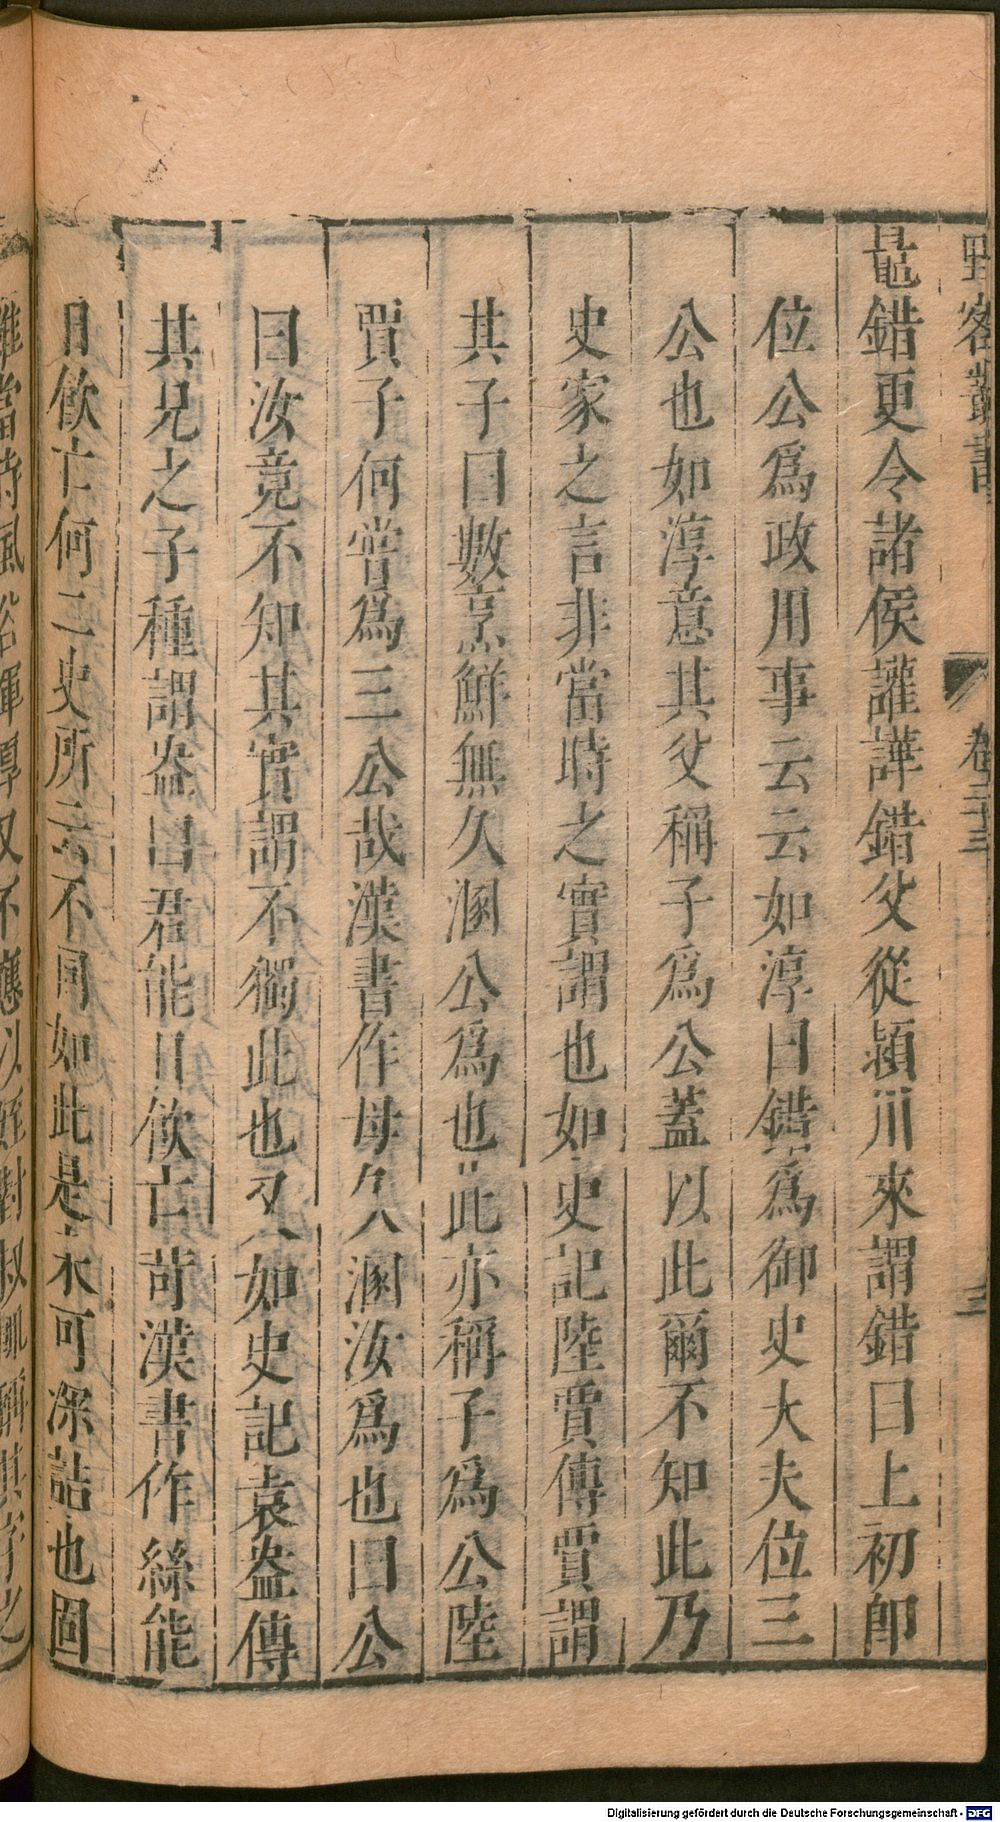 野客叢書
卷二十三
三
鼂錯更令諸侯讙譁錯父從潁川來謂錯曰上初卽
位公爲政用事云云如淳曰錯爲御史大夫位三
公也如淳意其父稱子爲公蓋以此爾不知此乃
史家之言非當時之實謂也如史記陸賈傳賈謂
其子曰數烹鮮無久溷公爲也此亦稱子爲公陸
賈子何嘗爲三公哉漢書作毋久溷汝爲也曰公
曰汝竟不知其實謂不獨此也又如史記袁盎傳
其兄之子種謂盎曰君能日飲亡苛漢書作絲能
日飲亡何二史所云不同如此是未可深詰也固
雖當時風俗渾厚又不應以姪對叔輒稱其字之
Digitalisierung gefördert durch die Deutsche Forschungsgemeinschaft - DFG